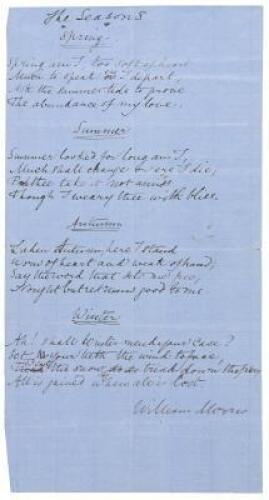 The Seasons
Spring.
Spring am I, too soft of heart
Much to speak ere I depart,
Ask the summer tide to prove
The abundance of my love.
Summer
Summer looked for long am I,
Much shall change or ere I die,
Prithee take it not amiss
Though I weary thee with bliss.
Autumn
Laden Autumn, here I stand
Worn of heart and weak of hand,
Say the word that sets me free,
Nought but rest seems good to me.
Winter
Ah! shall Winter mend your case?
Set your teeth the wind to face
the snow down
All is gained when all is lost.
William Morris